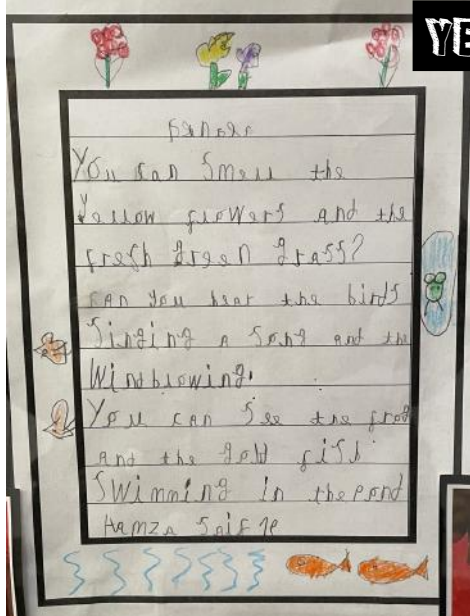 YE
You can smell the
yellow flowers and the
fresh green grass?
can you hear the birds
Singing a song and the
Windblowing.
You can see the frog
and the gold fish
Swimming in the pond
Hamza Saif